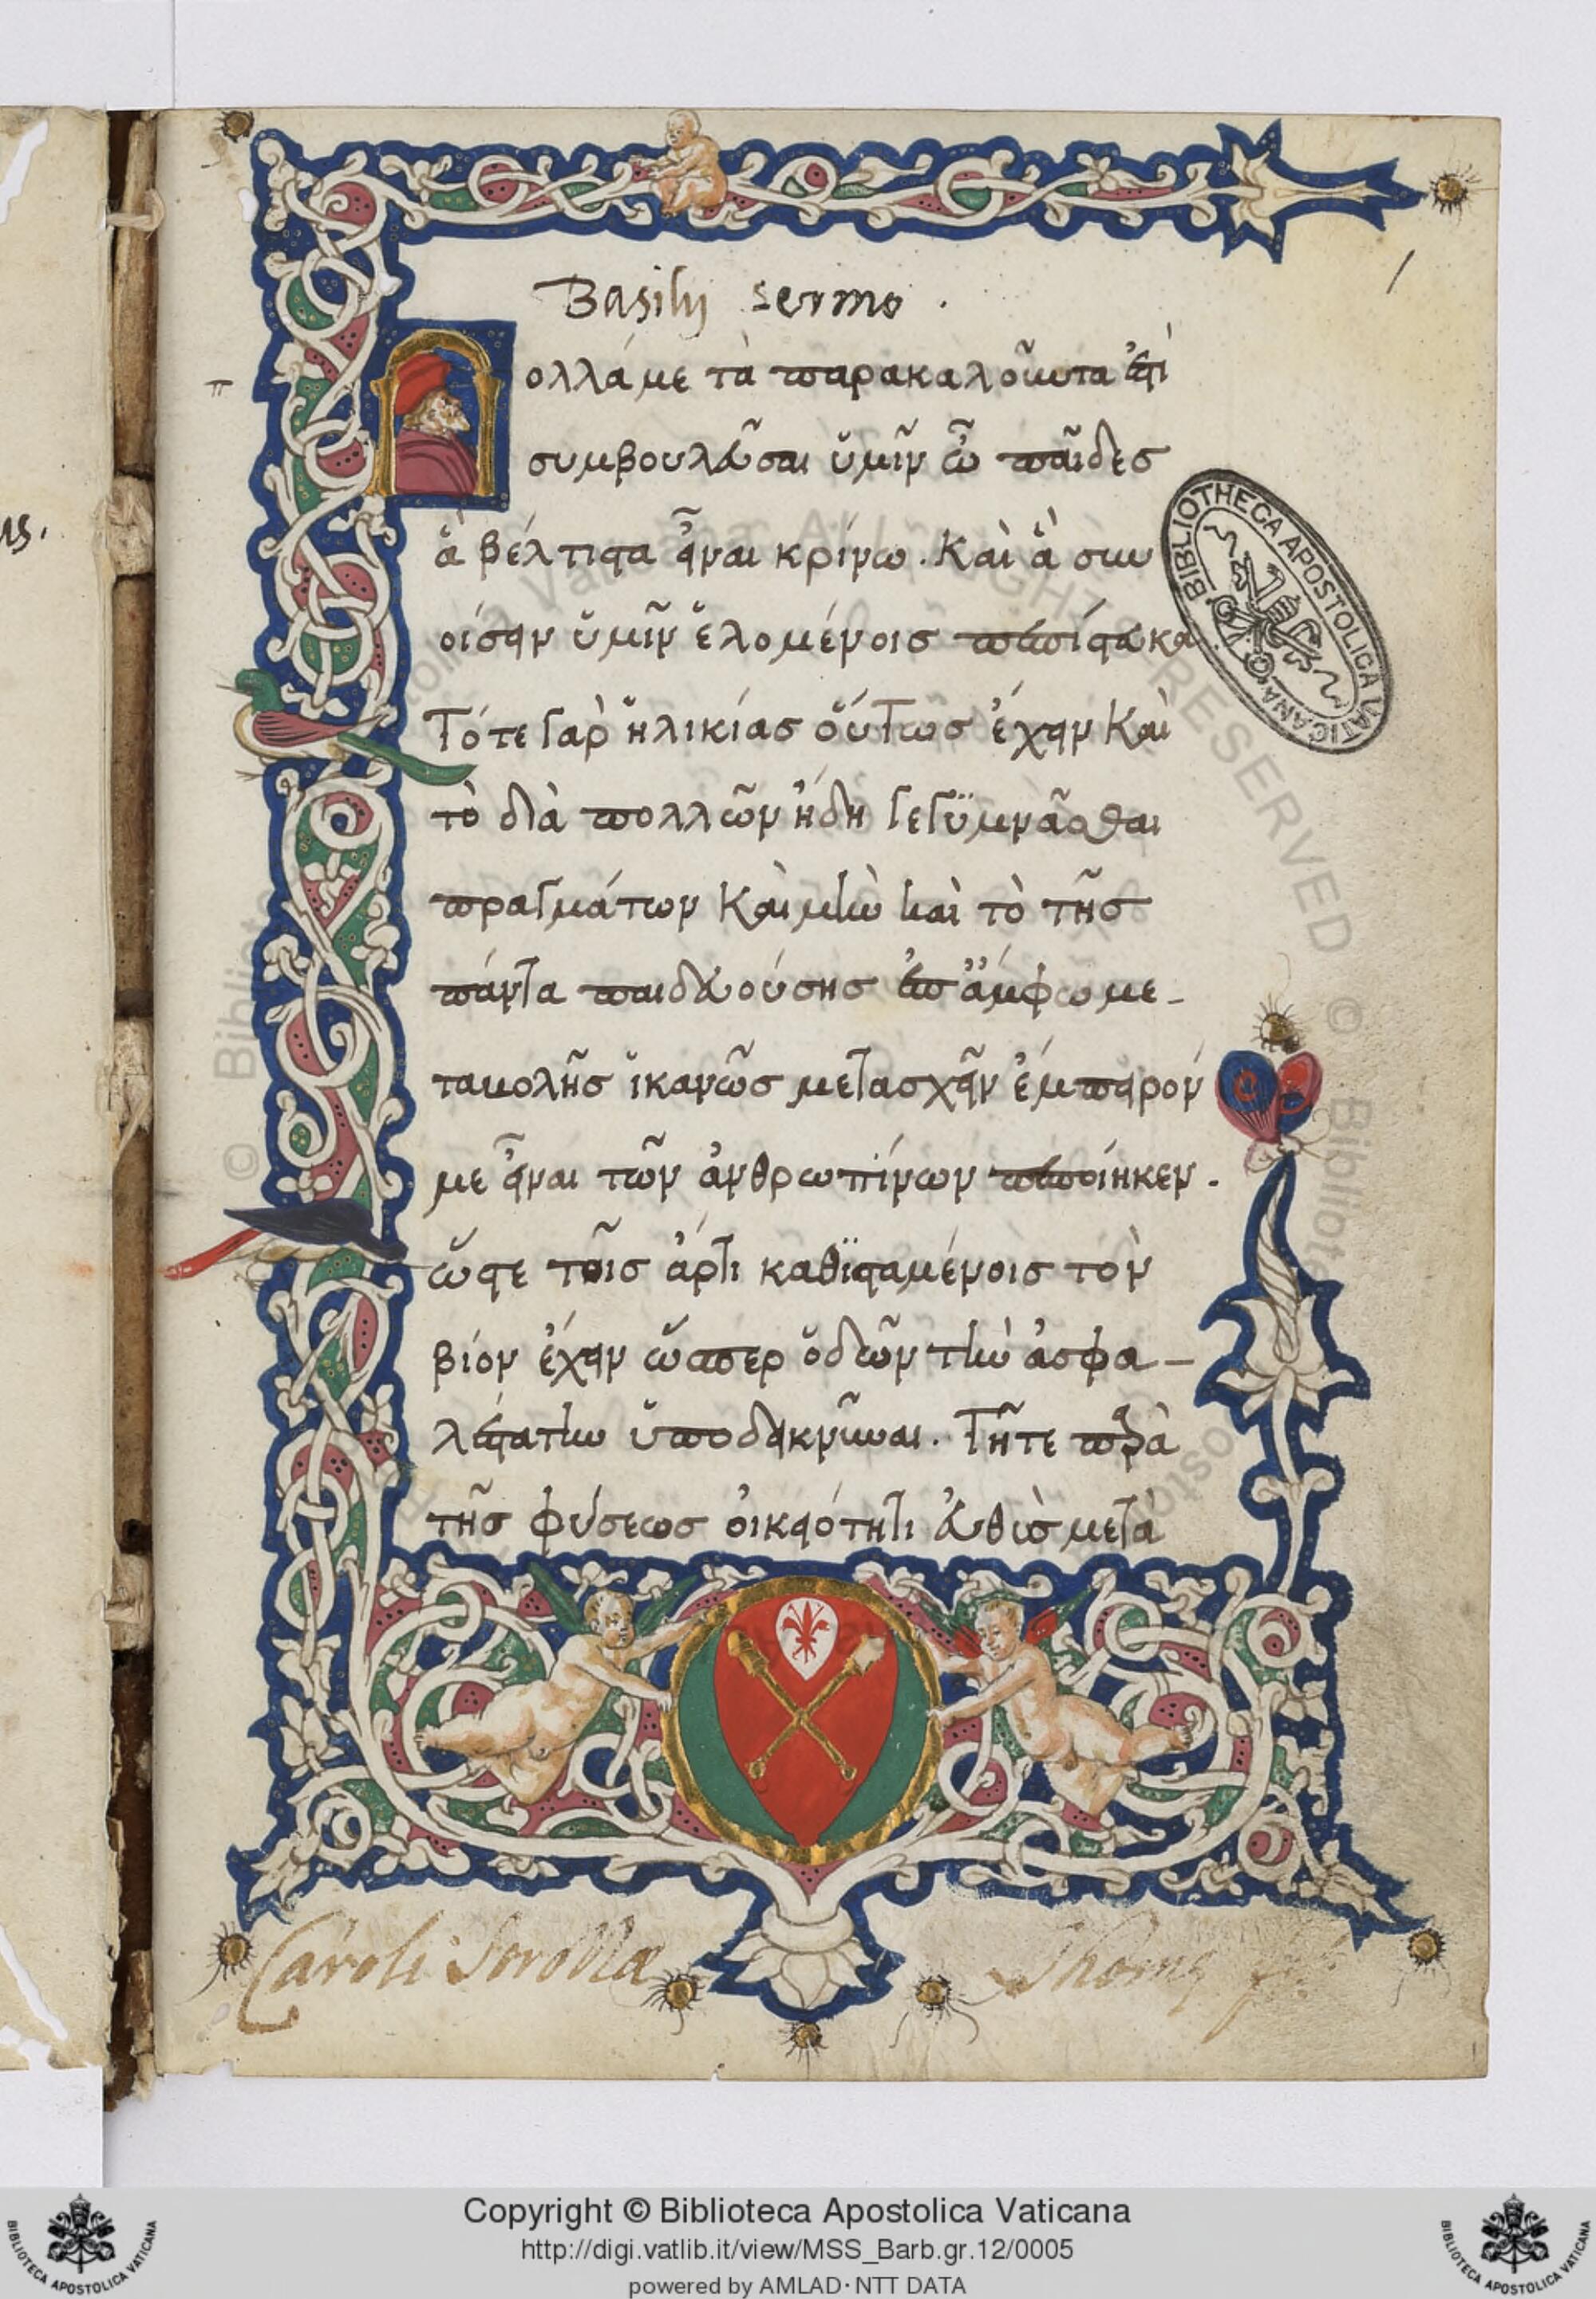 Basilij sermo .
1
π
ολλά με τὰ παρακαλοῦντα ἐστὶ
συμβουλεῦσαι ὑμῖν ὦ παῖδες
ἃ βέλτιστα εἶναι κρίνω . Καὶ ἃ συν
οίσειν ὑμῖν ἑλομένοις πεπίστευκα
Τότε γὰρ ἡλικίας οὕτως ἔχειν Καὶ
τὸ διὰ πολλῶν ἤδη γεγϋμνᾶσθαι
πραγμάτων Καὶ μὴν καὶ τὸ τῆς
πάντα παιδευούσης ἐπ' ἄμφω με-
ταβολῆς ἱκανῶς μετασχεῖν ἔμπειρόν
με εἶναι τῶν ἀνθρωπίνων πεποίηκεν .
ὥστε τοῖς ἄρτι καθϊσταμένοις τὸν
βίον ἔχειν ὥσπερ ὁδῶν τὴν ἀσφα-
λεστάτην ὑποδεικνῦναι . Τῆτε παρὰ
τῆς φύσεως οἰκειότητι εὐθὺς μετὰ
Caroli Strozzæ
Thomæ fil.
BIBLIOTHECA APOSTOLICA VATICANA
Copyright © Biblioteca Apostolica Vaticana
http://digi.vatlib.it/view/MSS_Barb.gr.12/0005
powered by AMLAD·NTT DATA
BIBLIOTECA APOSTOLICA VATICANA
BIBLIOTECA APOSTOLICA VATICANA